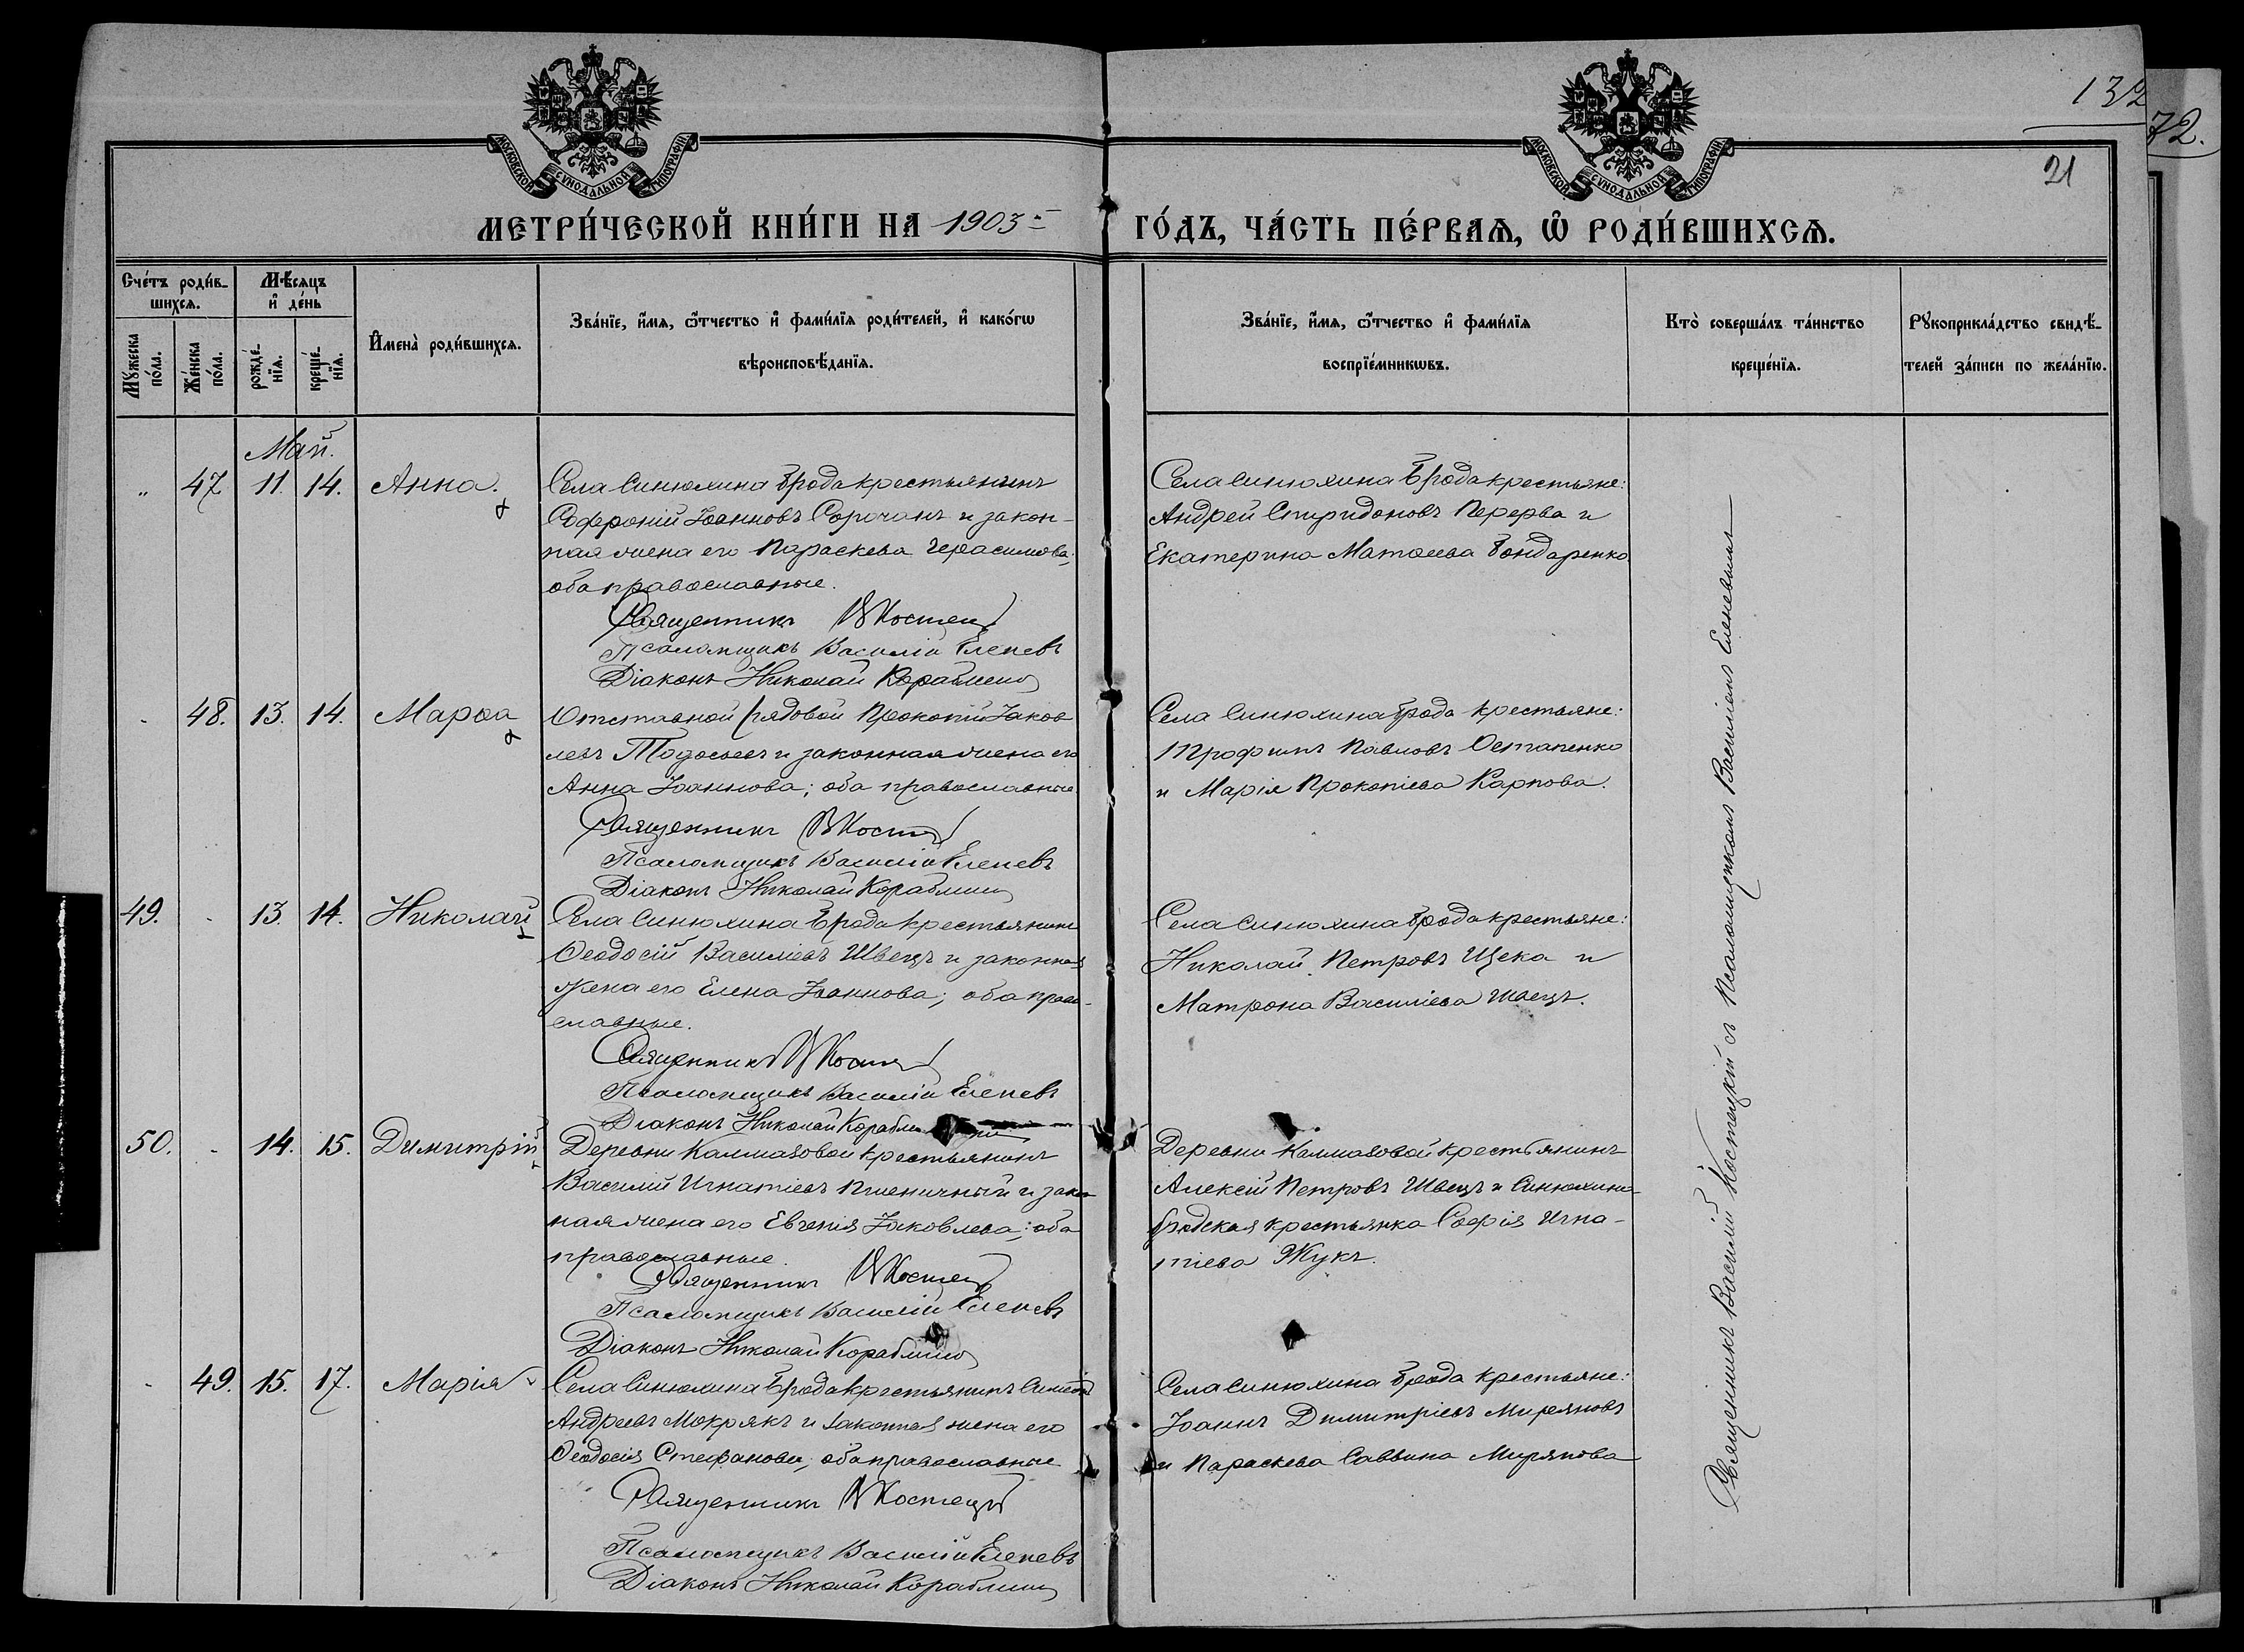 132
72.
21
МОСКОВСКОЙ СУНОДАЛЬНОЙ ТИПОГРАФІИ
МОСКОВСКОЙ СУНОДАЛЬНОЙ ТИПОГРАФІИ
МЕТРИ́ЧЕСКОЙ КНИ́ГИ НА 1903 й
ГО́ДЪ, ЧА́СТЬ ПЕ́РВАѦ, Ѡ РОДИ́ВШИХСѦ.
Сче́тъ роди́в-
шихсѧ.
Мꙋ́жеска по́ла.
Же́нска по́ла.
Мѣ́сяцъ
и҆ де́нь
рожде́-нїѧ.
креще́-нїѧ.
И҆мена̀ роди́вшихсѧ.
Зва́нїе, и҆́мѧ, ѻ҆́тчество и҆ фами́лїѧ роди́телей, и҆ како́гѡ
вѣроисповѣ́данїѧ.
Зва́нїе, и҆́мѧ, ѻ҆́тчество и҆ фами́лїѧ
воспрїе́мникѡвъ.
Кто̀ соверша́лъ та́инство
креще́нїѧ.
Рꙋкоприкла́дство свидѣ́-
телей за́писи по жела́нїю.
Май.
" 47. 11. 14. Анна.
Села Синюхина Брода крестьянинъ
Софроній Іоанновъ Сорочанъ и закон-
ная жена его Параскева Герасимова;
оба православные.
Священникъ В Костец
Псаломщикъ Василій Еленевъ
Діаконъ Николай Кораблино
Села Синюхина Брода крестьяне:
Андрей Спиридоновъ Перерва и
Екатерина Матѳеева Бондаренко.
- 48. 13. 14. Марѳа
Отставной рядовой Прокопій Іаков
левъ и законная жена его
Анна Іоаннова; оба православные
Священникъ В Кост
Псаломщикъ Василій Еленевъ
Діаконъ Николай Кораблин
Села Синюхина Брода крестьяне:
Трофимъ Павловъ Остапенко
и Марія Прокопіева Карпова.
49. - 13 14. Николай
Села Синюхина Брода крестьянинъ
Ѳеодосій Василіевъ Швецъ и законная
жена его Елена Іоаннова; оба право-
славные.
Священникъ В Кост
Псаломщикъ Василій Еленевъ
Діаконъ Николай Корабли
Села Синюхина Брода крестьяне:
Николай Петровъ Щека и
Матрона Василіева Швецъ.
50. - 14. 15. Димитрій
Деревни Калмазовой крестьянинъ
Василій Игнатіевъ Пшеничный и закон
ная жена его Евгенія Іаковлева; оба
православные.
Священникъ В Костец
Псаломщикъ Василій Еленевъ
Діаконъ Николай Кораблино
Деревни Калмазовой крестьянинъ
Алексій Петровъ Швецъ и Синюхино-
бродская крестьянка Софія Игна-
тіева Жукъ.
- 49. 15. 17. Марія
Села Синюхина Брода крестьянинъ Симеонъ
Андреевъ Мокрякъ и законная жена его
Ѳеодосія Стефанова; оба православные
Священникъ В Костецкій
Псаломщикъ Василій Еленевъ
Діаконъ Николай Кораблин
Села Синюхина Брода крестьяне:
Іоаннъ Димитріевъ Миряновъ
и Параскева Саввина Мирянова
Священникъ Василій Костецкій съ Псаломщикомъ Василіемъ Еленевымъ